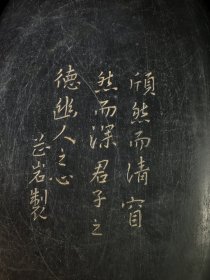 頎然而清窅
然而深君子之
德幽人之心
芝岩製